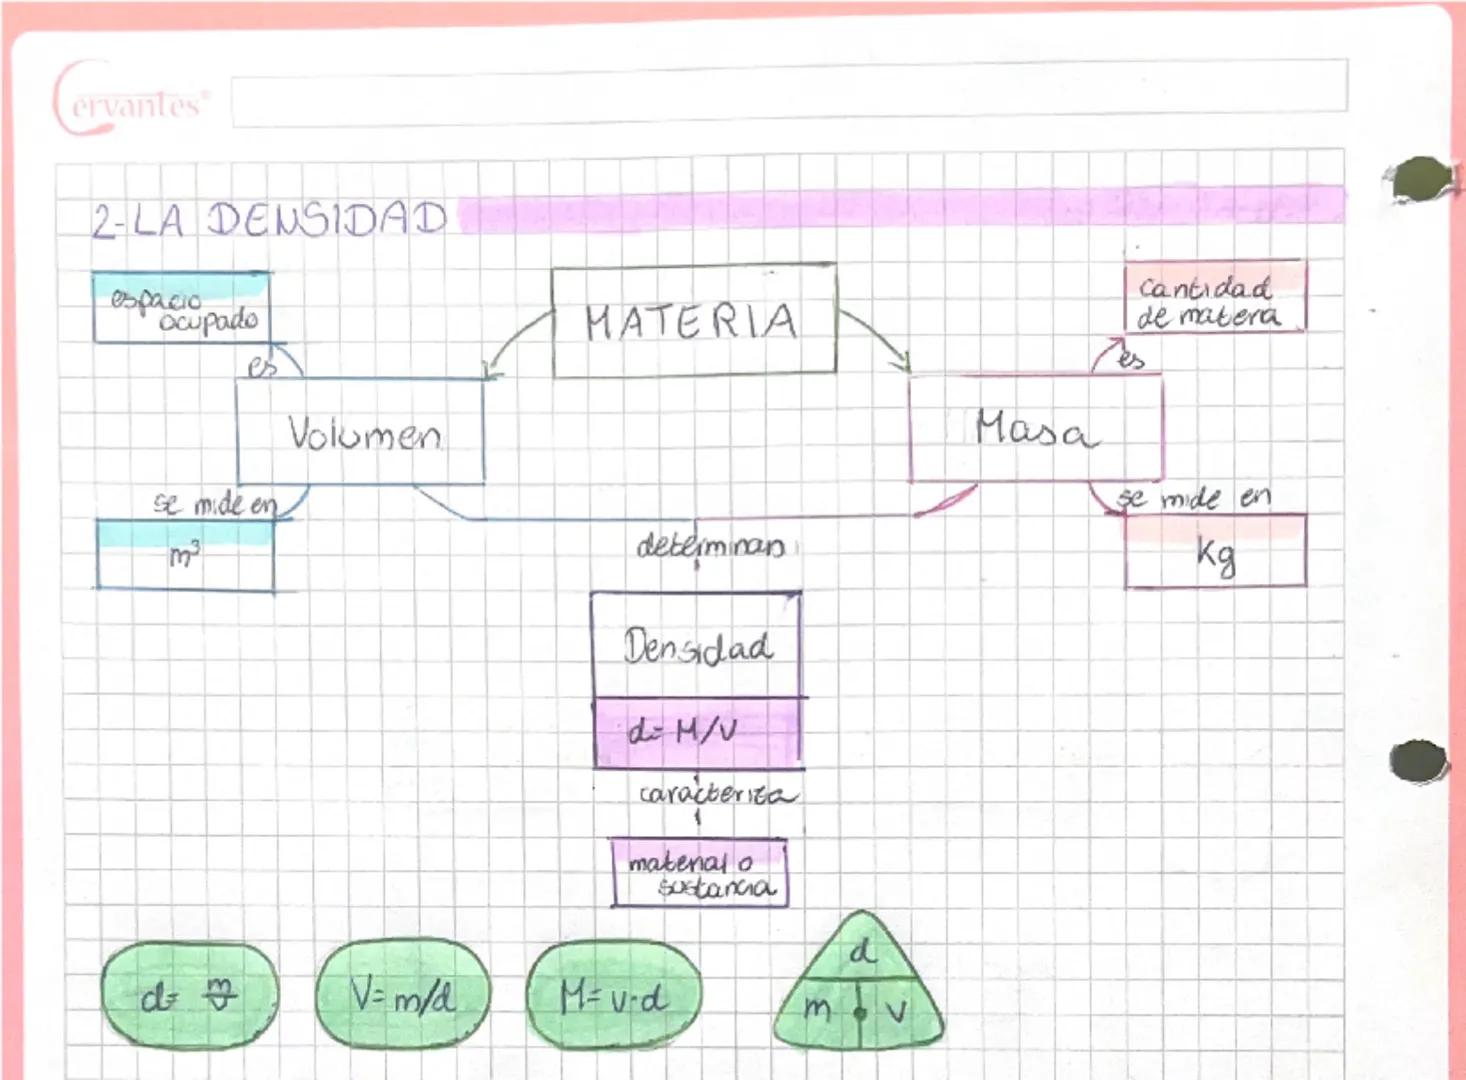 Cervantes®
2-LA DENSIDAD
espacio
ocupado
MATERIA
cantidad
de matera
es
es
Volumen
Masa
se mide en
se mide en
m³
determinan
Kg
Densidad
d= M/V
caracteriza
material o
sustancia
d= m/v
V= m/d
M= v·d
d
m
v